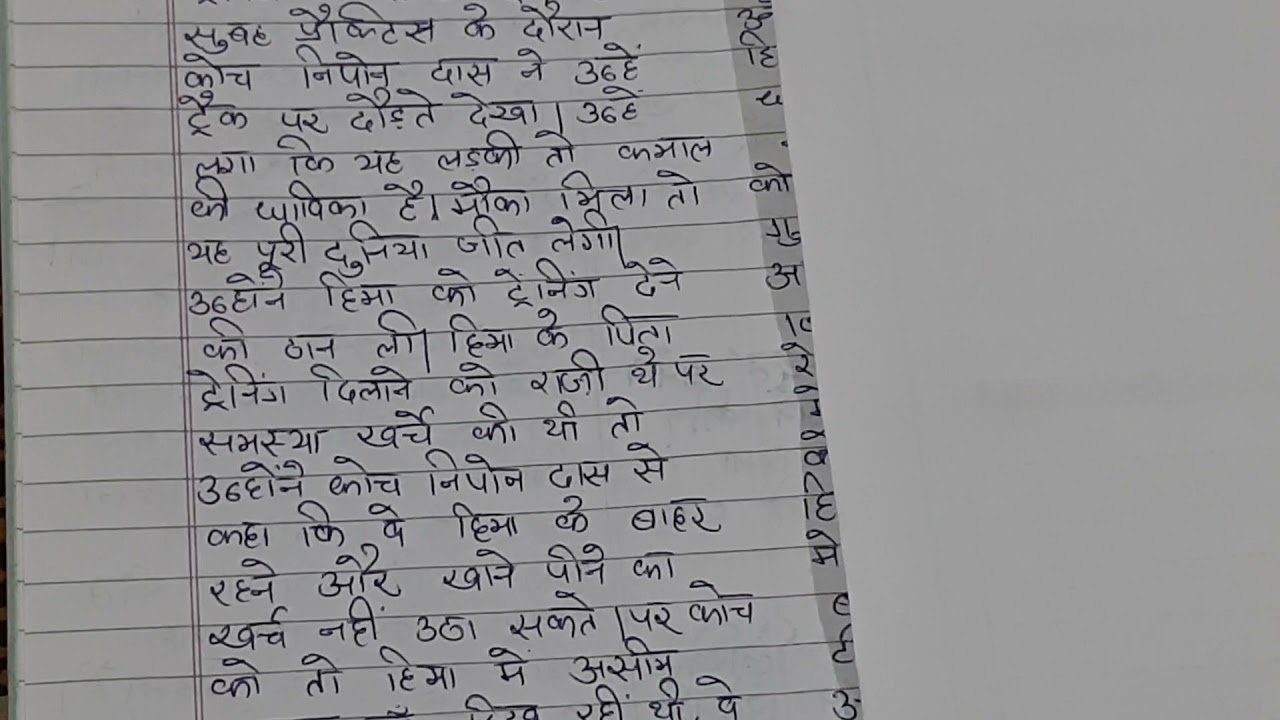 सुबह प्रैक्टिस के दौरान
कोच निपोन दास ने उन्हें
ट्रैक पर दौड़ते देखा। उन्हें
लगा कि यह लड़की तो कमाल
की धाविका है। मौका मिला तो
यह पूरी दुनिया जीत लेगी।
उन्होंने हिमा को ट्रेंनिंग देने
की ठान ली। हिमा के पिता
ट्रेनिंग दिलाने को राज़ी थे पर
समस्या खर्चे की थी तो
उन्होंने कोच निपोन दास से
कहा कि वे हिमा के बाहर
रहने और खाने पीने का
खर्च नहीं उठा सकते। पर कोच
को तो हिमा में असीम
रहीं थी, वे